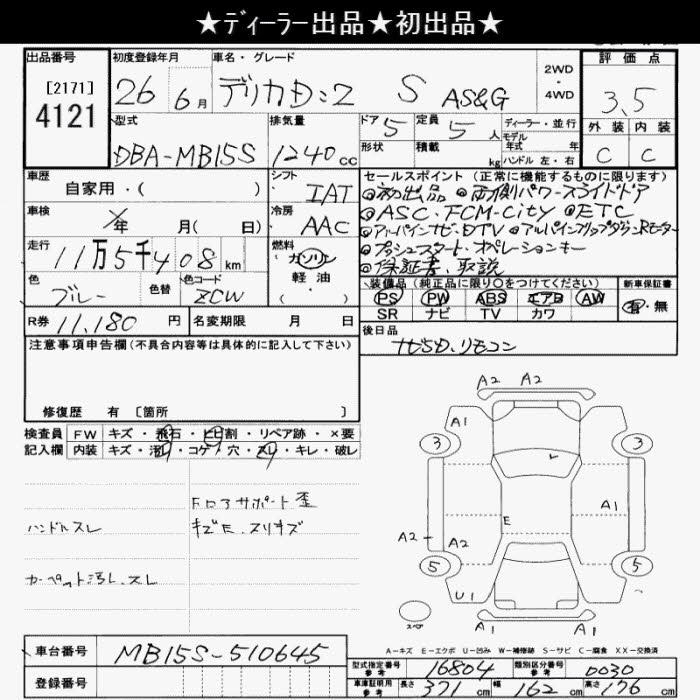 ★ディーラー出品★初出品★
出品番号 初度登録年月 車名・グレード 評価点
[2171]
4121
26 6月 デリカD:2 S AS&G 2WD・4WD 3.5
型式 排気量 ドア 定員 ディーラー・並行 外装 内装
DBA-MB15S 1240cc 5 5人 モデル年式 年 C C
形状 積載 kg ハンドル 左・右
車歴 シフト セールスポイント(正常に機能するものに限ります)
自家用・( ) IAT ◎初出品 ◎両側パワースライドドア
車検 年 月( 日) 冷房 AAC ◎ASC・FCM-City ◎ETC
◎アルパインナビ・DTV ◎アルパインフリップダウンRモニター
走行 11万5千408km 燃料 ガソリン ◎プッシュスタート・オペレーションキー
軽油 ・( ) ◎保証書・取説
色 ブルー 色替 色コード ZCW 装備品(純正品に限り○をつけてください) 新車保証書
PS PW ABS エアB AW 有・無
SR ナビ TV カワ
R券 11,180円 名変期限 月 日 後日品
注意事項申告欄(不具合内容等は具体的に記入して下さい) ナビSD、リモコン
修復歴 有 [箇所 ]
検査員 FW キズ・飛石・ヒビ割・リペア跡・×要
記入欄 内装 キズ・汚レ・コゲ・穴・スレ・キレ・破レ
A2 A2
A1
3 3
FロアサポートE歪
ハンドルスレ キズE、スリキズ
E A1
A2 A2
カーペット汚レ、スレ
5 5
U1
スペア A1 A1
A-キズ E-エクボ U-凹み W-補修跡 S-サビ C-腐食 XX-交換済
車台番号 MB15S-510645
型式指定番号 参考 16804 類別区分番号 参考 0030
登録番号 車庫証明用 参考 長さ 371cm 幅 162cm 高さ 176cm